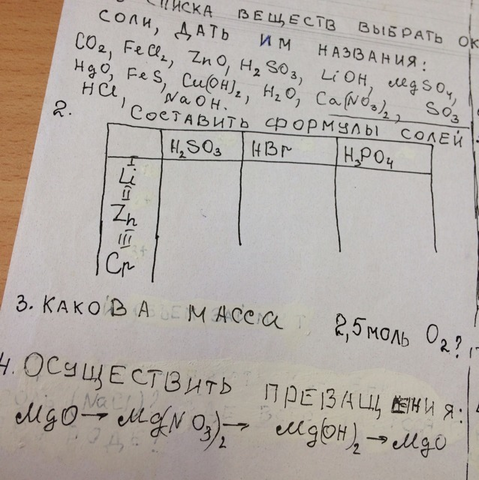 СПИСКА ВЕЩЕСТВ ВЫБРАТЬ ОК
СОЛИ, ДАТЬ ИМ НАЗВАНИЯ:
CO2, FeCl2, ZnO, H2SO3, LiOH, MgSO4,
HgO, FeS, Cu(OH)2, H2O, Ca(NO3)2, SO3
HCl, NaOH.
2. СОСТАВИТЬ ФОРМУЛЫ СОЛЕЙ
H2SO3 HBr H3PO4
I
Li
II
Zn
III
Cr
3. КАКОВА МАССА 2,5 моль O2?
4. ОСУЩЕСТВИТЬ ПРЕВАЩЕНИЯ:
MgO → Mg(NO3)2 → Mg(OH)2 → MgO